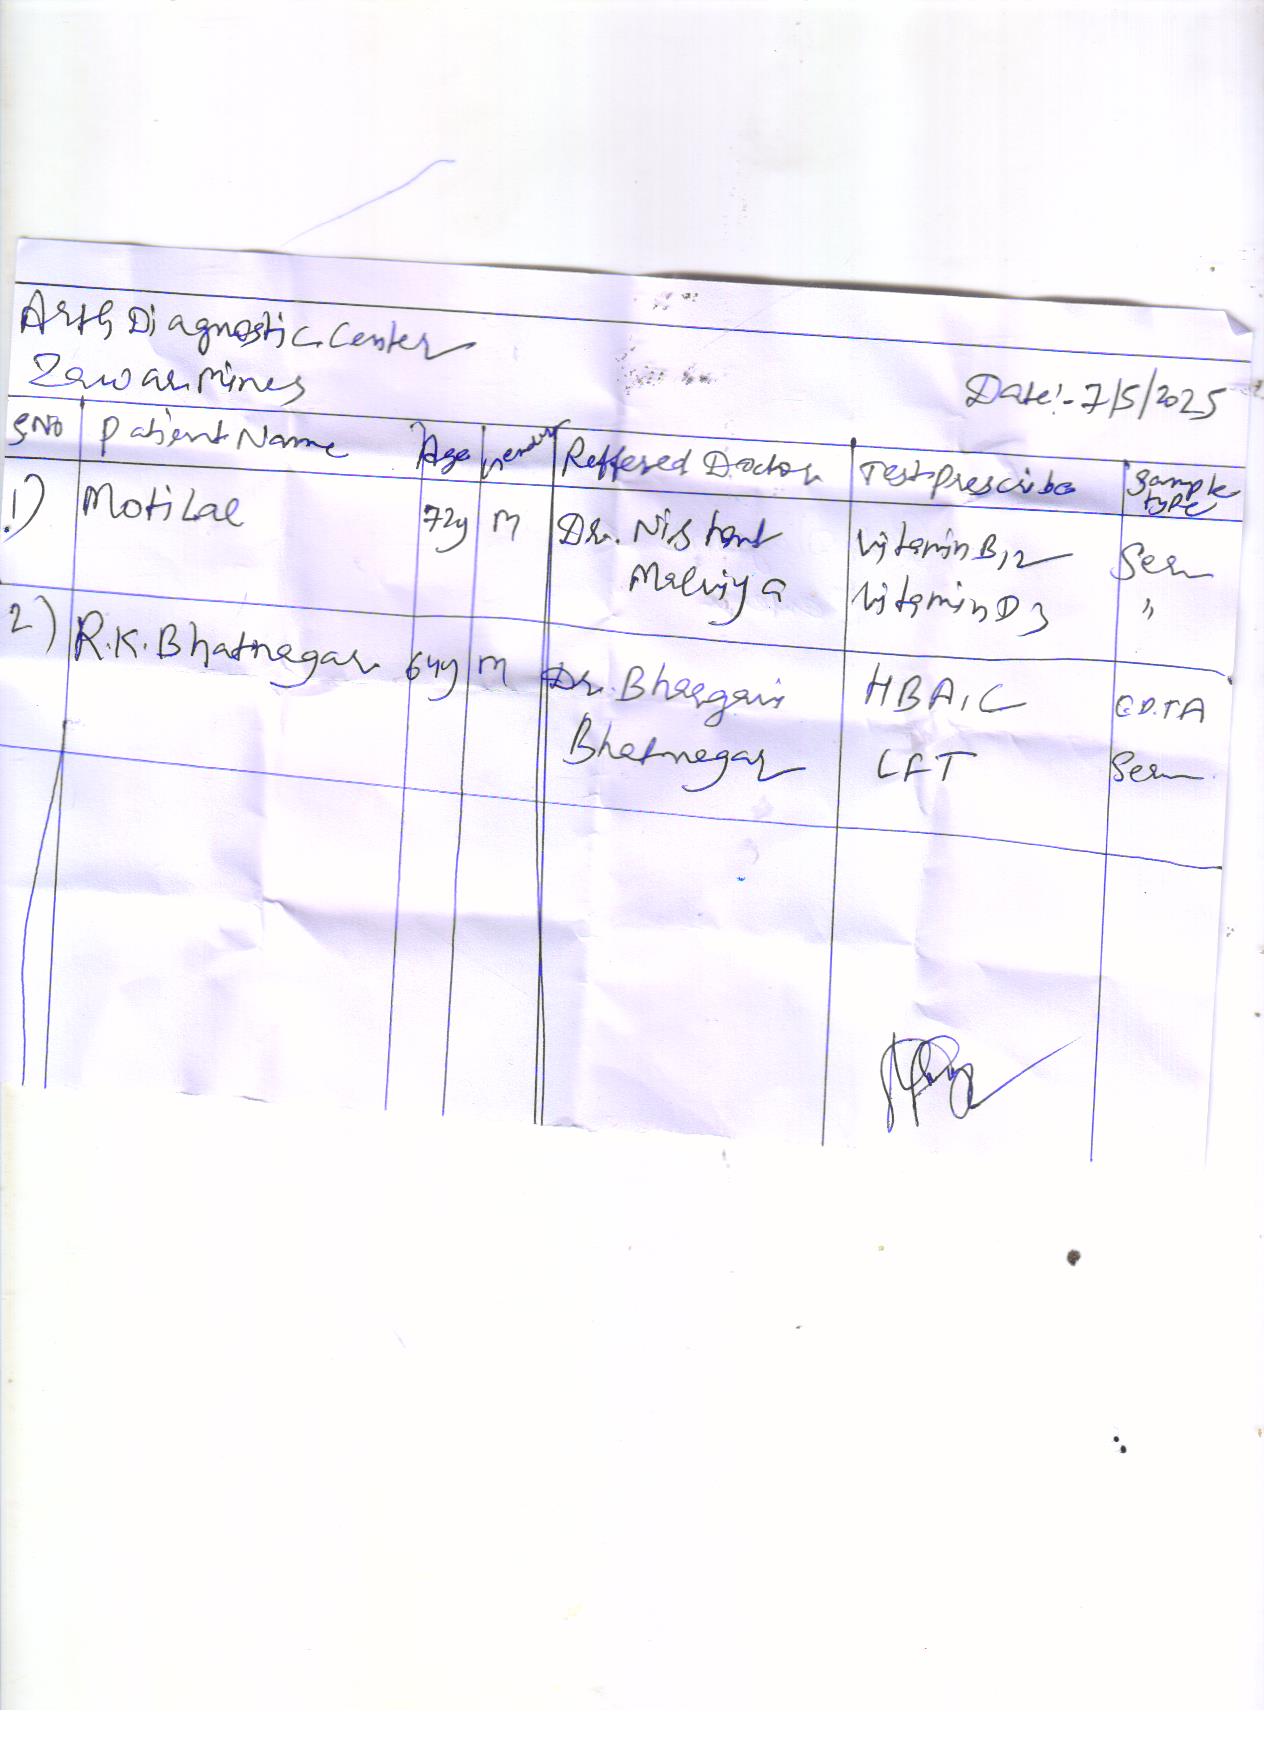 Arth Diagnostic Center
Zawar Mines
Date:- 7/5/2025
S.No Patient Name Age Gender Reffered Doctor Test Prescribe Sample Type
1) Motilal 72y M Dr. Nishant Malviya Vitamin B12 Serum
Vitamin D3 "
2) R.K. Bhatnagar 64y M Dr. Bhargavi HBA1C E.D.TA
Bhatnagar LFT Serum